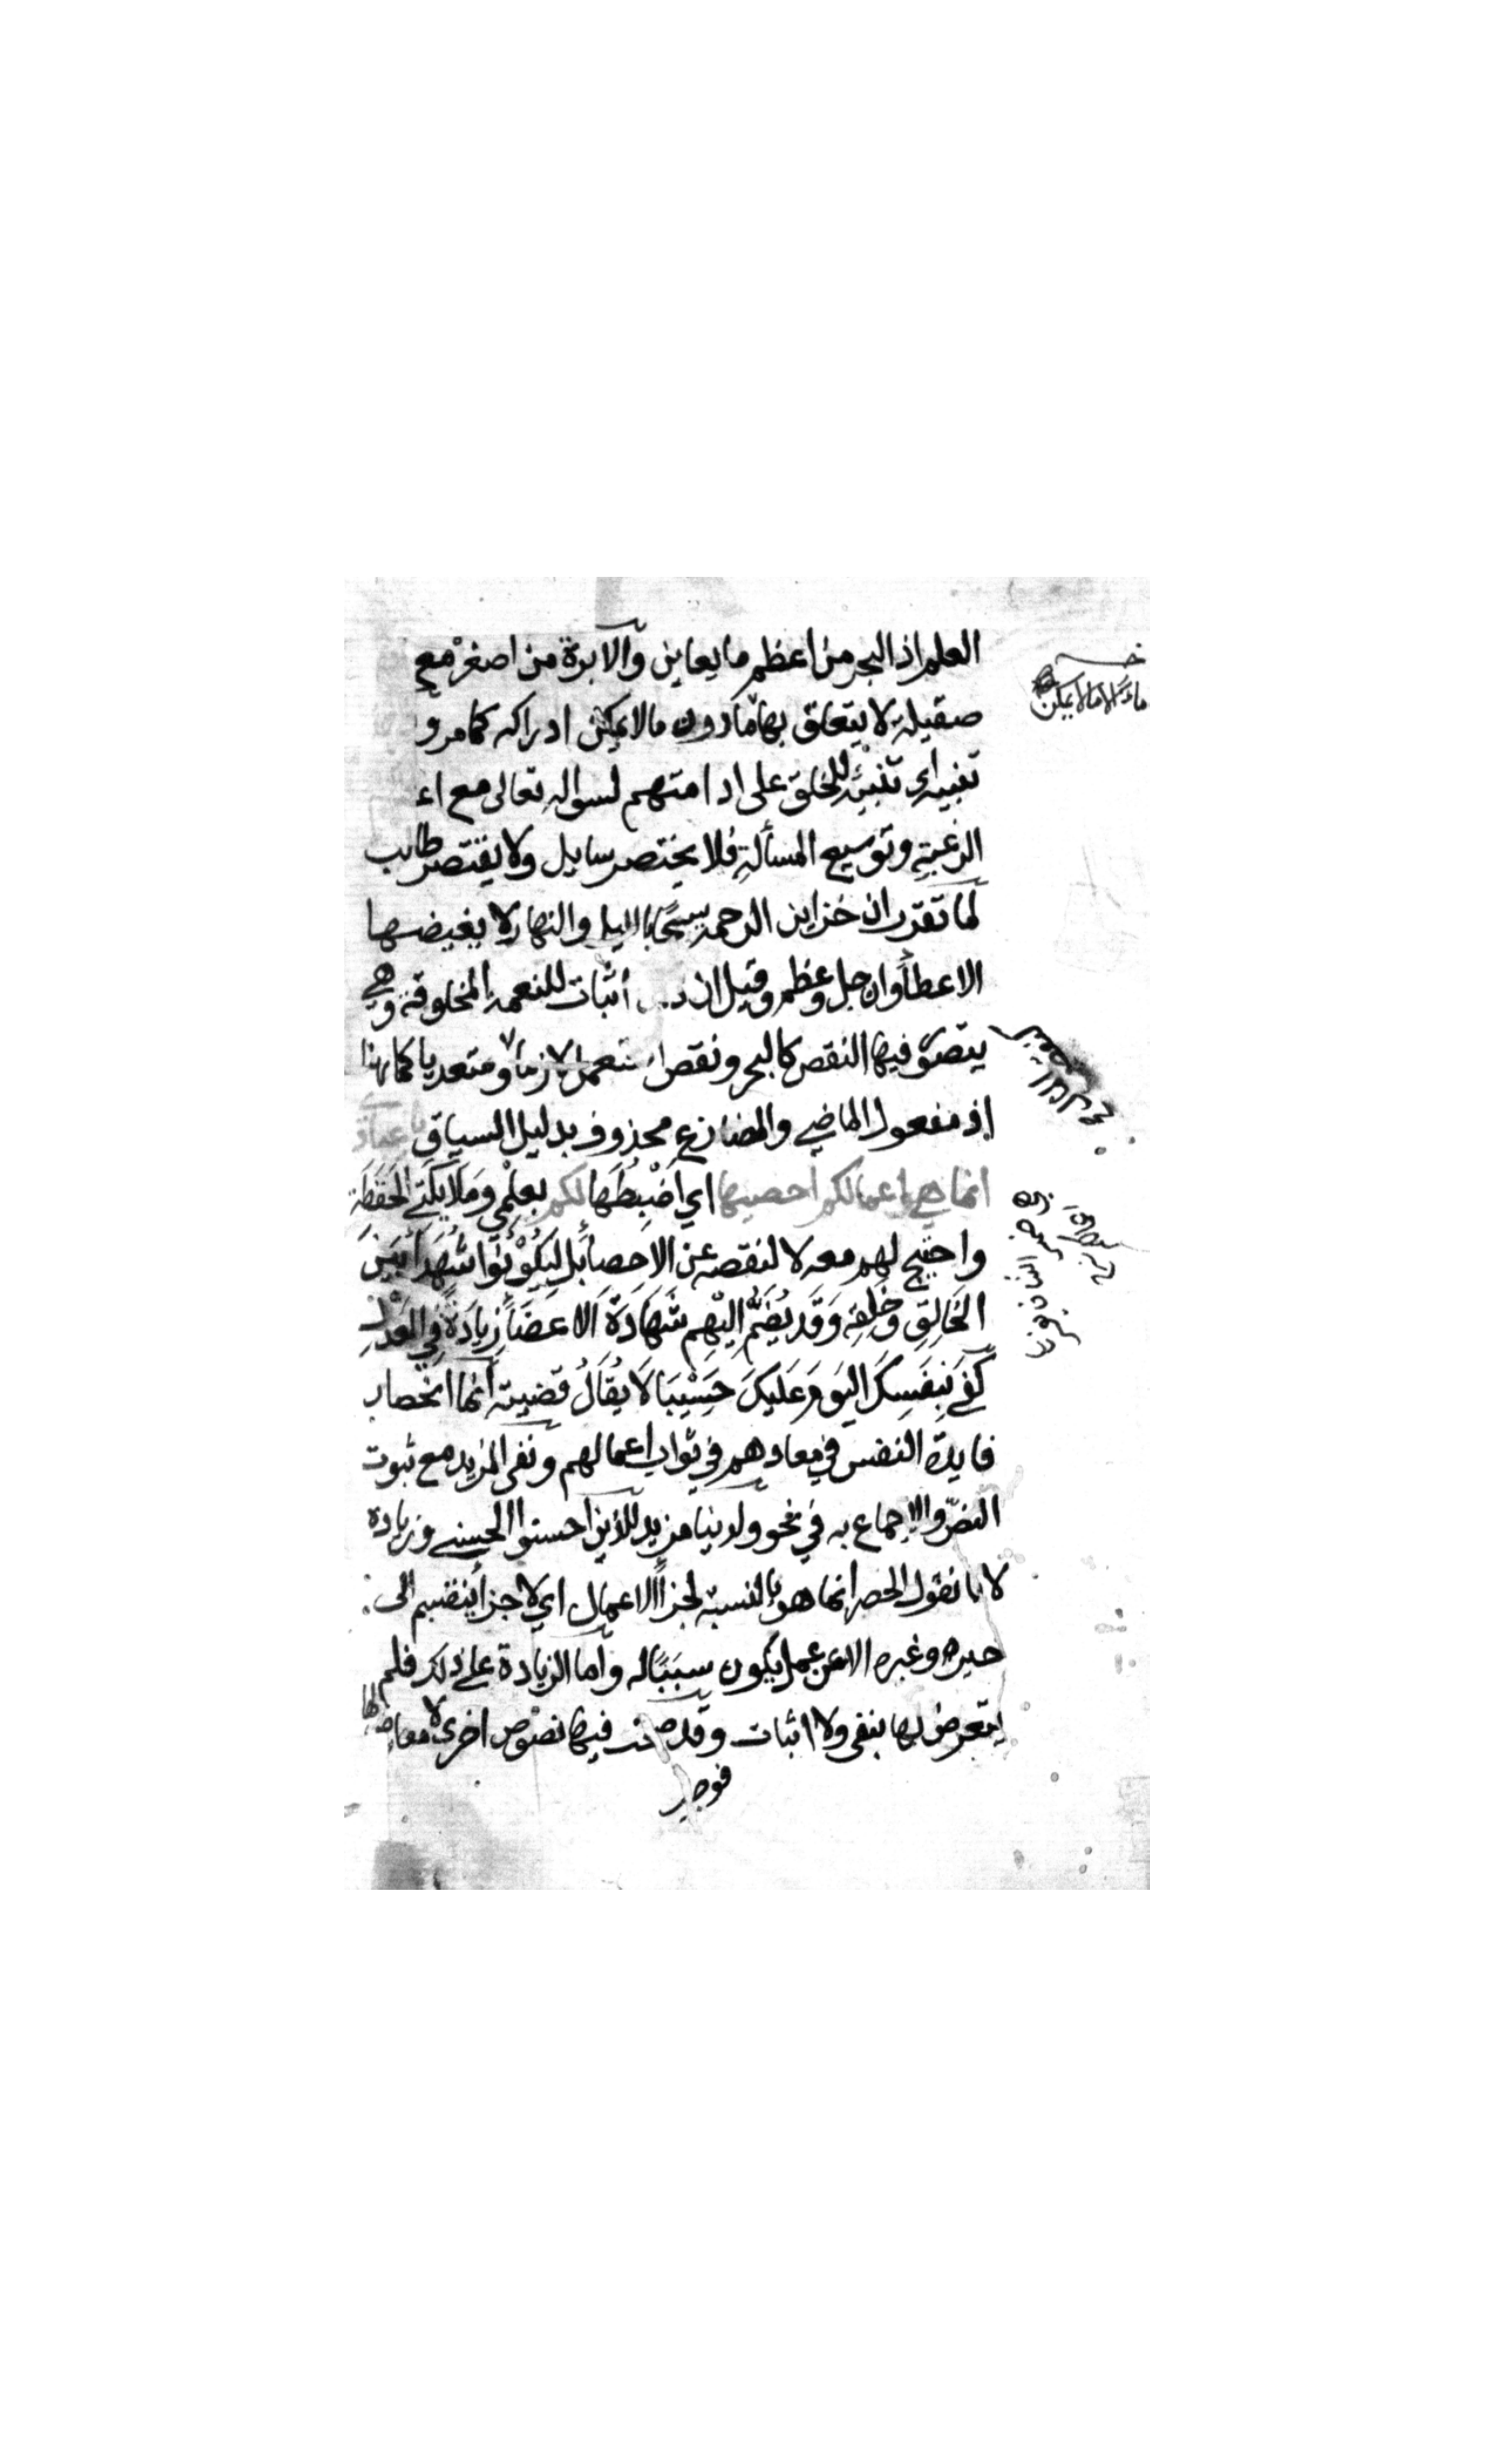 العلم اذ البحر من اعظم ما يعاين والابرة من اصغر مع
صقيلة لا يتعلق بها ما دون مالا يمكن ادراكه كما مر و
تنبيه اي تنبيه للخلق على ادامتهم لسواله تعالى مع اء
الرغبة وتوسيع المسألة فلا يختصر سايل ولا يقتصر طالب
لما تقرر ان خزاين الرحمة سحا بالليل والنهار لا يغيضها
الاعطأ وان جل وعظم وقيل ان اثبات للنعمة المخلوقة وهي
يتصور فيها النقص كالبحر ونقص لازما ومتعديا كما هنا
اذ مفعول الماضي والمضارع محذوف بدليل السياق يا عبادي
انما هي اعمالكم احصيها اي اضبطها لكم بعلمي وملايكتي الحفظة
واحتيج لهم معه لا لنقصه عن الاحصأ بل ليكونوا شهدأ بين
الخالق وخلقه وقد يضم اليهم شهادة الاعضأ زيادة في العدل
كفى بنفسك اليوم عليك حسيبا لا يقال قضيته انما انحصار
فايدة النفس في معادهم في ثواب اعمالهم ونفى المزيد مع ثبوت
النص والاجماع به في نحو ولدينا مزيد للذين احسنوا الحسنى وزيادة
لانا نقول الحصر انما هو بالنسبة لجزأ الاعمال اي لا جزأ ينقسم الى
خيره وغيره الا عن عمل يكون سببا له واما الزيادة على ذلك فلم
يتعرض لها بنفى ولا اثبات وقد صحت فيها نصوص اخرى لا معارض لها
فوجب